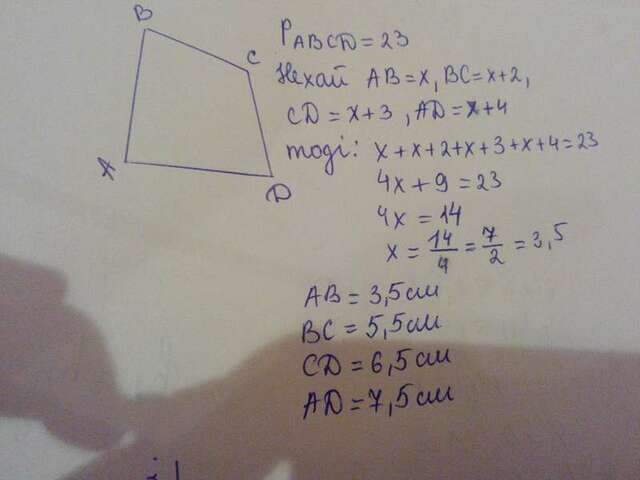 B
C
A
D
P ABCD = 23
Нехай AB = x, BC = x+2,
CD = x+3, AD = x+4
тоді: x + x + 2 + x + 3 + x + 4 = 23
4x + 9 = 23
4x = 14
x = 14/4 = 7/2 = 3,5
AB = 3,5 см
BC = 5,5 см
CD = 6,5 см
AD = 7,5 см